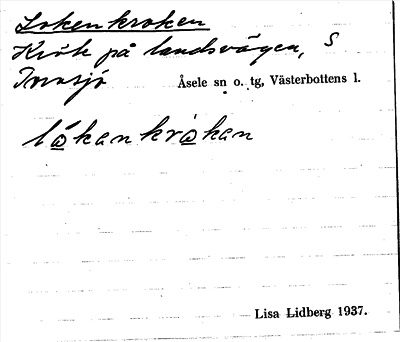 Lokenkroken
Krök på landsvägen, S
Torvsjö Åsele sn o. tg, Västerbottens l.
låkankråkan
Lisa Lidberg 1937.